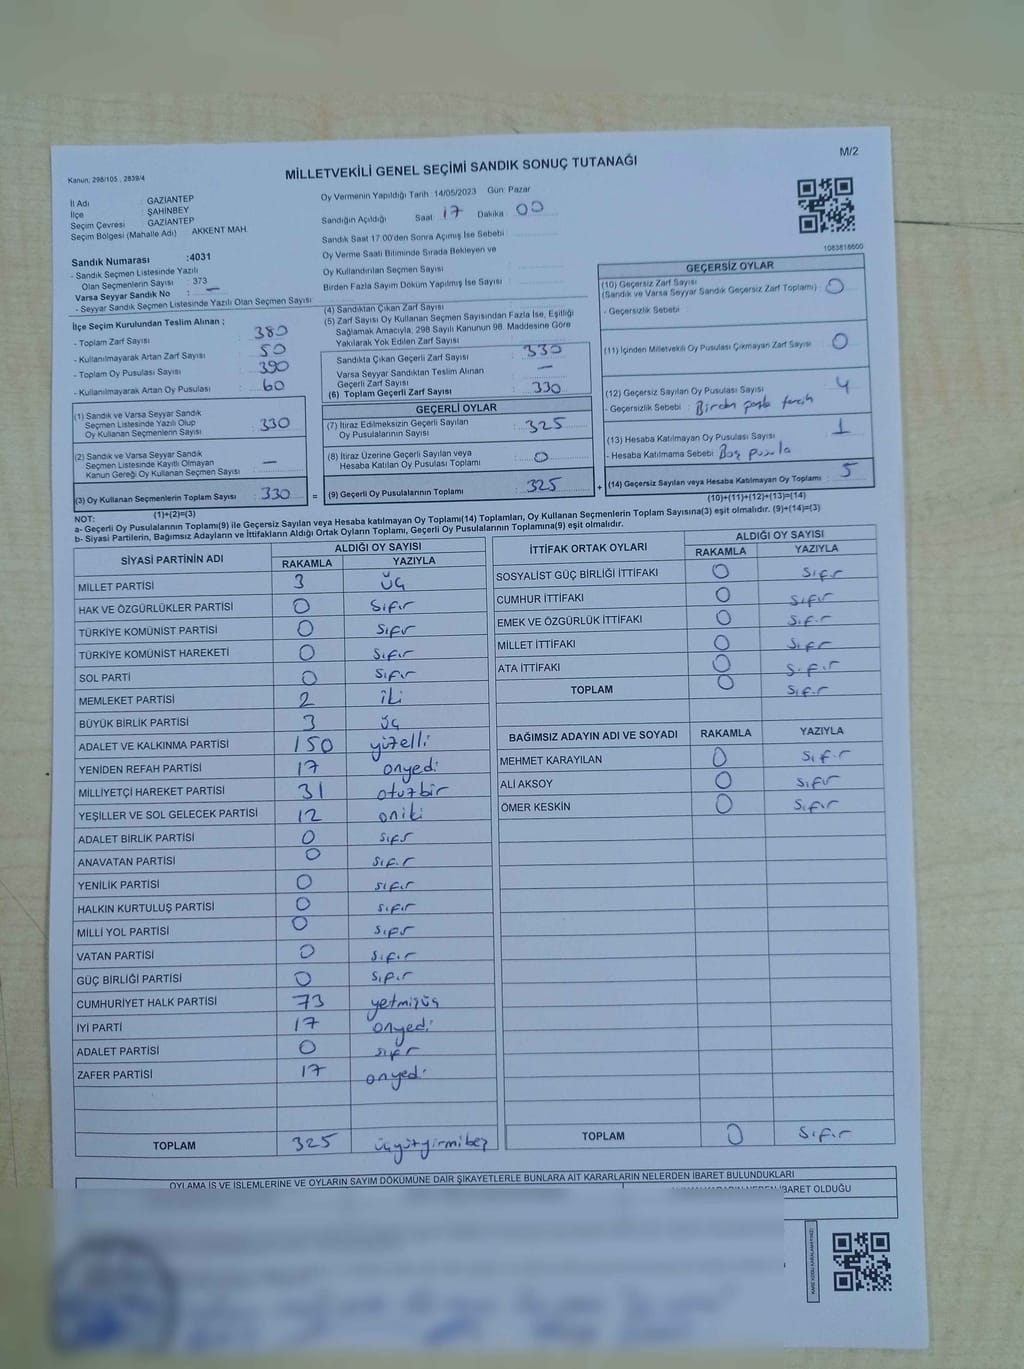 M/2
Kanun: 298/105 , 2839/4
MİLLETVEKİLİ GENEL SEÇİMİ SANDIK SONUÇ TUTANAĞI
İl Adı : GAZİANTEP
İlçe : ŞAHİNBEY
Seçim Çevresi : GAZİANTEP
Seçim Bölgesi (Mahalle Adı) : AKKENT MAH.
Sandık Numarası :4031
- Sandık Seçmen Listesinde Yazılı
Olan Seçmenlerin Sayısı : 373
Varsa Seyyar Sandık No : —
- Seyyar Sandık Seçmen Listesinde Yazılı Olan Seçmen Sayısı :
Oy Vermenin Yapıldığı Tarih :14/05/2023 Gün: Pazar
Sandığın Açıldığı Saat 17 Dakika : 00
Sandık Saat 17:00'den Sonra Açımış İse Sebebi :
Oy Verme Saati Bitiminde Sırada Bekleyen ve
Oy Kullandırılan Seçmen Sayısı :
Birden Fazla Sayım Döküm Yapılmış İse Sayısı :
1083818600
İlçe Seçim Kurulundan Teslim Alınan :
- Toplam Zarf Sayısı : 380
- Kullanılmayarak Artan Zarf Sayısı : 50
- Toplam Oy Pusulası Sayısı : 390
- Kullanılmayarak Artan Oy Pusulası : 60
(1) Sandık ve Varsa Seyyar Sandık
Seçmen Listesinde Yazılı Olup
Oy Kullanan Seçmenlerin Sayısı : 330
(2) Sandık ve Varsa Seyyar Sandık
Seçmen Listesinde Kayıtlı Olmayan
Kanun Gereği Oy Kullanan Seçmen Sayısı : —
(3) Oy Kullanan Seçmenlerin Toplam Sayısı : 330
(1)+(2)=(3)
(4) Sandıktan Çıkan Zarf Sayısı
(5) Zarf Sayısı Oy Kullanan Seçmen Sayısından Fazla İse, Eşitliği
Sağlamak Amacıyla, 298 Sayılı Kanunun 98. Maddesine Göre
Yakılarak Yok Edilen Zarf Sayısı
Sandıkta Çıkan Geçerli Zarf Sayısı : 330
Varsa Seyyar Sandıktan Teslim Alınan
Geçerli Zarf Sayısı : —
(6) Toplam Geçerli Zarf Sayısı : 330
GEÇERLİ OYLAR
(7) İtiraz Edilmeksizin Geçerli Sayılan
Oy Pusulalarının Sayısı : 325
(8) İtiraz Üzerine Geçerli Sayılan veya
Hesaba Katılan Oy Pusulası Toplamı : 0
= (9) Geçerli Oy Pusulalarının Toplamı : 325 +
GEÇERSİZ OYLAR
(10) Geçersiz Zarf Sayısı
(Sandık ve Varsa Seyyar Sandık Geçersiz Zarf Toplamı) : 0
- Geçersizlik Sebebi :
(11) İçinden Milletvekili Oy Pusulası Çıkmayan Zarf Sayısı : 0
(12) Geçersiz Sayılan Oy Pusulası Sayısı : 4
- Geçersizlik Sebebi : Birden fazla tercih
(13) Hesaba Katılmayan Oy Pusulası Sayısı : 1
- Hesaba Katılmama Sebebi : Boş pusula
(14) Geçersiz Sayılan veya Hesaba Katılmayan Oy Toplamı : 5
(10)+(11)+(12)+(13)=(14)
NOT:
a- Geçerli Oy Pusulalarının Toplamı(9) ile Geçersiz Sayılan veya Hesaba katılmayan Oy Toplamı(14) Toplamları, Oy Kullanan Seçmenlerin Toplam Sayısına(3) eşit olmalıdır. (9)+(14)=(3)
b- Siyasi Partilerin, Bağımsız Adayların ve İttifakların Aldığı Ortak Oyların Toplamı, Geçerli Oy Pusulalarının Toplamına(9) eşit olmalıdır.
SİYASİ PARTİNİN ADI ALDIĞI OY SAYISI
RAKAMLA YAZIYLA
MİLLET PARTİSİ 3 üç
HAK VE ÖZGÜRLÜKLER PARTİSİ 0 sıfır
TÜRKİYE KOMÜNİST PARTİSİ 0 sıfır
TÜRKİYE KOMÜNİST HAREKETİ 0 sıfır
SOL PARTİ 0 sıfır
MEMLEKET PARTİSİ 2 iki
BÜYÜK BİRLİK PARTİSİ 3 üç
ADALET VE KALKINMA PARTİSİ 150 yüzelli
YENİDEN REFAH PARTİSİ 17 onyedi
MİLLİYETÇİ HAREKET PARTİSİ 31 otuzbir
YEŞİLLER VE SOL GELECEK PARTİSİ 12 oniki
ADALET BİRLİK PARTİSİ 0 sıfır
ANAVATAN PARTİSİ 0 sıfır
YENİLİK PARTİSİ 0 sıfır
HALKIN KURTULUŞ PARTİSİ 0 sıfır
MİLLİ YOL PARTİSİ 0 sıfır
VATAN PARTİSİ 0 sıfır
GÜÇ BİRLİĞİ PARTİSİ 0 sıfır
CUMHURİYET HALK PARTİSİ 73 yetmişüç
İYİ PARTİ 17 onyedi
ADALET PARTİSİ 0 sıfır
ZAFER PARTİSİ 17 onyedi
TOPLAM 325 üçyüzyirmibeş
İTTİFAK ORTAK OYLARI ALDIĞI OY SAYISI
RAKAMLA YAZIYLA
SOSYALİST GÜÇ BİRLİĞİ İTTİFAKI 0 sıfır
CUMHUR İTTİFAKI 0 sıfır
EMEK VE ÖZGÜRLÜK İTTİFAKI 0 sıfır
MİLLET İTTİFAKI 0 sıfır
ATA İTTİFAKI 0 sıfır
TOPLAM 0 sıfır
BAĞIMSIZ ADAYIN ADI VE SOYADI RAKAMLA YAZIYLA
MEHMET KARAYILAN 0 sıfır
ALİ AKSOY 0 sıfır
ÖMER KESKİN 0 sıfır
TOPLAM 0 sıfır
OYLAMA İŞ VE İŞLEMLERİNE VE OYLARIN SAYIM DÖKÜMÜNE DAİR ŞİKAYETLERLE BUNLARA AİT KARARLARIN NELERDEN İBARET BULUNDUKLARI
İBARET OLDUĞU